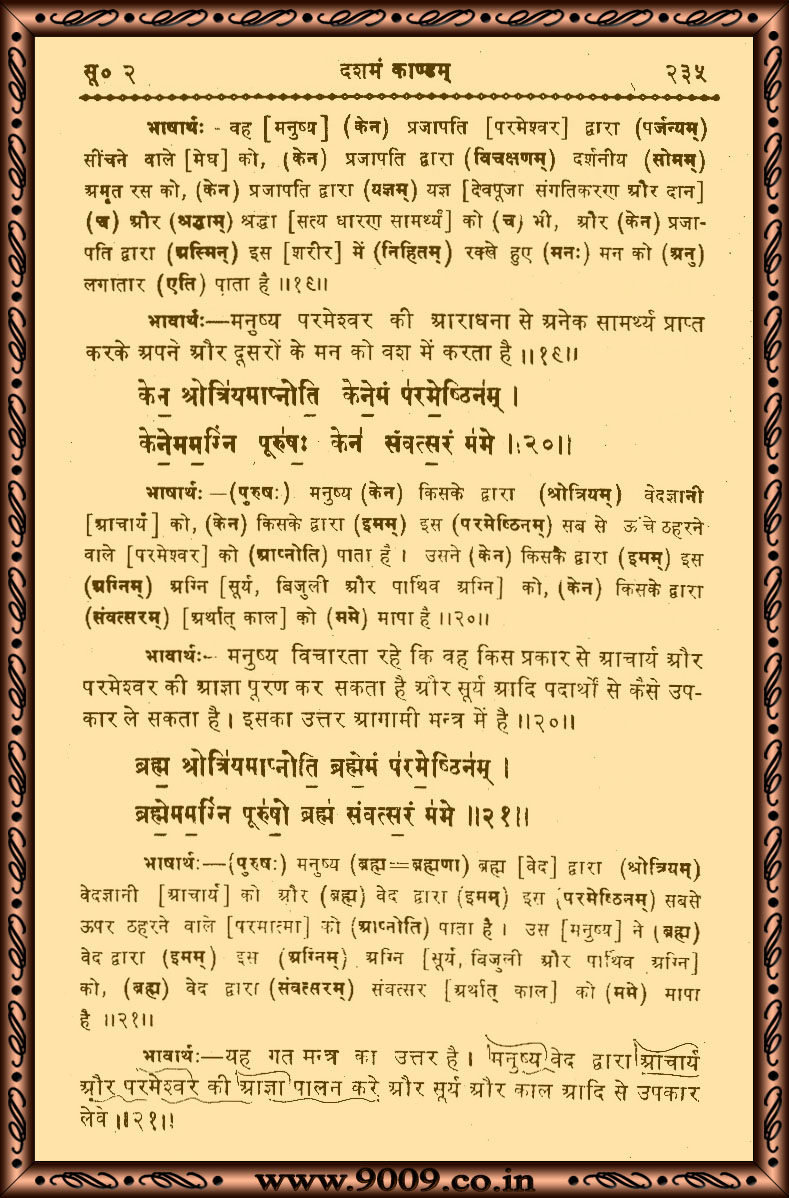 सू० २ दशमं काण्डम् २३५
भाषार्थः - वह [मनुष्य] (केन) प्रजापति [परमेश्वर] द्वारा (पर्जन्यम्)
सींचने वाले [मेघ] को, (केन) प्रजापति द्वारा (विचक्षणम्) दर्शनीय (सोमम्)
अमृत रस को, (केन) प्रजापति द्वारा (यज्ञम्) यज्ञ [देवपूजा संगतिकरण और दान]
(च) और (श्रद्धाम्) श्रद्धा [सत्य धारण सामर्थ्य] को (च) भी, और (केन) प्रजा-
पति द्वारा (अस्मिन्) इस [शरीर] में (निहितम्) रक्खे हुए (मनः) मन को (अनु)
लगातार (एति) पाता है ॥१९॥
भावार्थः—मनुष्य परमेश्वर की आराधना से अनेक सामर्थ्य प्राप्त
करके अपने और दूसरों के मन को वश में करता है ॥१९॥
केन॒ श्रोत्रि॑यमाप्नोति॒ केने॒मं प॑रमे॒ष्ठिन॑म् ।
केने॒मम॒ग्निं पूरु॑षः॒ केन॑ संवत्स॒रं म॑मे ॥२०॥
भाषार्थः—(पुरुषः) मनुष्य (केन) किसके द्वारा (श्रोत्रियम्) वेदज्ञानी
[आचार्य] को, (केन) किसके द्वारा (इमम्) इस (परमेष्ठिनम्) सब से ऊंचे ठहरने
वाले [परमेश्वर] को (आप्नोति) पाता है । उसने (केन) किसके द्वारा (इमम्) इस
(अग्निम्) अग्नि [सूर्य, बिजुली और पार्थिव अग्नि] को, (केन) किसके द्वारा
(संवत्सरम्) [अर्थात् काल] को (ममे) मापा है ॥२०॥
भावार्थः-- मनुष्य विचारता रहे कि वह किस प्रकार से आचार्य और
परमेश्वर की आज्ञा पूरण कर सकता है और सूर्य आदि पदार्थों से कैसे उप-
कार ले सकता है । इसका उत्तर आगामी मन्त्र में है ॥२०॥
ब्रह्म॒ श्रोत्रि॑यमाप्नोति॒ ब्रह्मे॒मं प॑रमे॒ष्ठिन॑म् ।
ब्रह्मे॒मम॒ग्निं पूरु॑षो॒ ब्रह्म॑ संवत्स॒रं म॑मे ॥२१॥
भाषार्थः—(पुरुषः) मनुष्य (ब्रह्म=ब्रह्मणा) ब्रह्म [वेद] द्वारा (श्रोत्रियम्)
वेदज्ञानी [आचार्य] को और (ब्रह्म) वेद द्वारा (इमम्) इस (परमेष्ठिनम्) सबसे
ऊपर ठहरने वाले [परमात्मा] को (आप्नोति) पाता है । उस [मनुष्य] ने (ब्रह्म)
वेद द्वारा (इमम्) इस (अग्निम्) अग्नि [सूर्य, बिजुली और पार्थिव अग्नि]
को, (ब्रह्म) वेद द्वारा (संवत्सरम्) संवत्सर [अर्थात् काल] को (ममे) मापा
है ॥२१॥
भावार्थः—यह गत मन्त्र का उत्तर है । मनुष्य वेद द्वारा आचार्य
और परमेश्वर की आज्ञा पालन करे और सूर्य और काल आदि से उपकार
लेवे ॥२१॥
www.9009.co.in